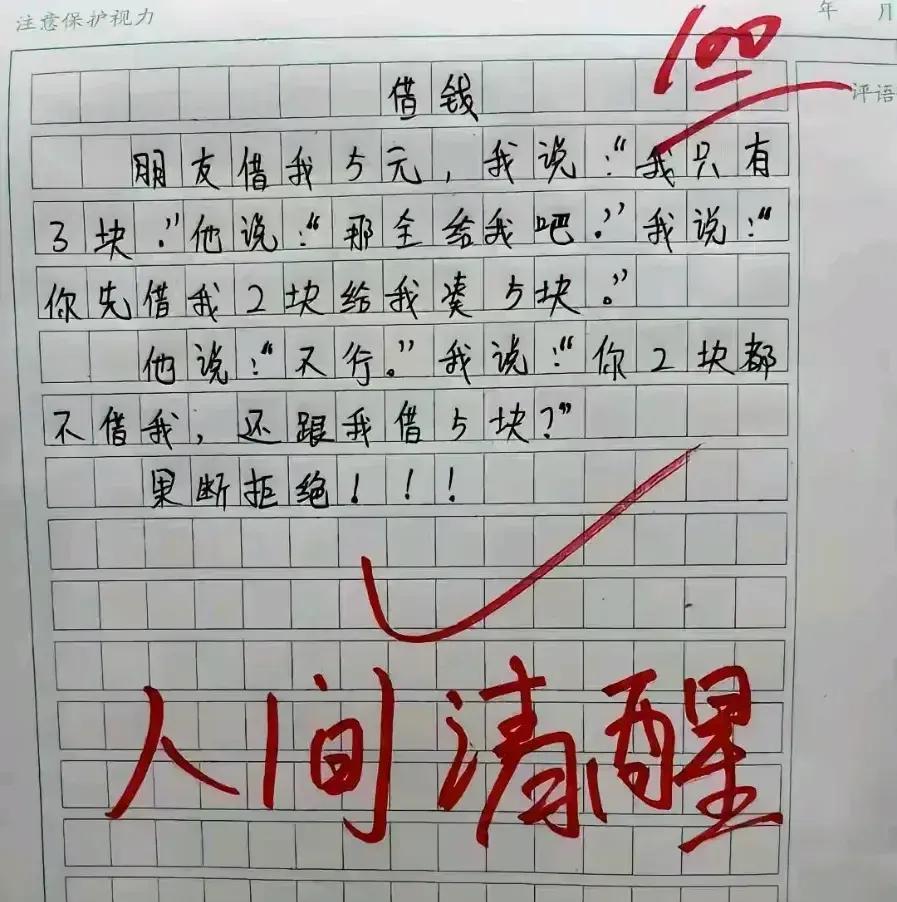 注意保护视力
年 月
100
评语
借钱
朋友借我5元,我说:“我只有
3块.”他说:“那全给我吧.”我说:“
你先借我2块给我凑5块。”
他说:“不行。”我说:“你2块都
不借我,还跟我借5块?”
果断拒绝!!!
人间清醒